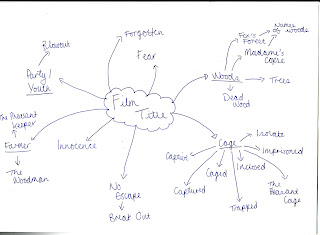 Forgotten
Fear
Blowout
Party/
Youth
The Pheasant
Keeper
Farmer
The
Woodman
Innocence
Film
Title
No
Escape
Break Out
Woods
Fox's
Forest
Names
of woods
Madame's
Copse
Trees
Dead
Wood
Cage
Isolate
Imprisoned
Incised
The
Pheasant
Cage
Trapped
Caged
Captured
Captive